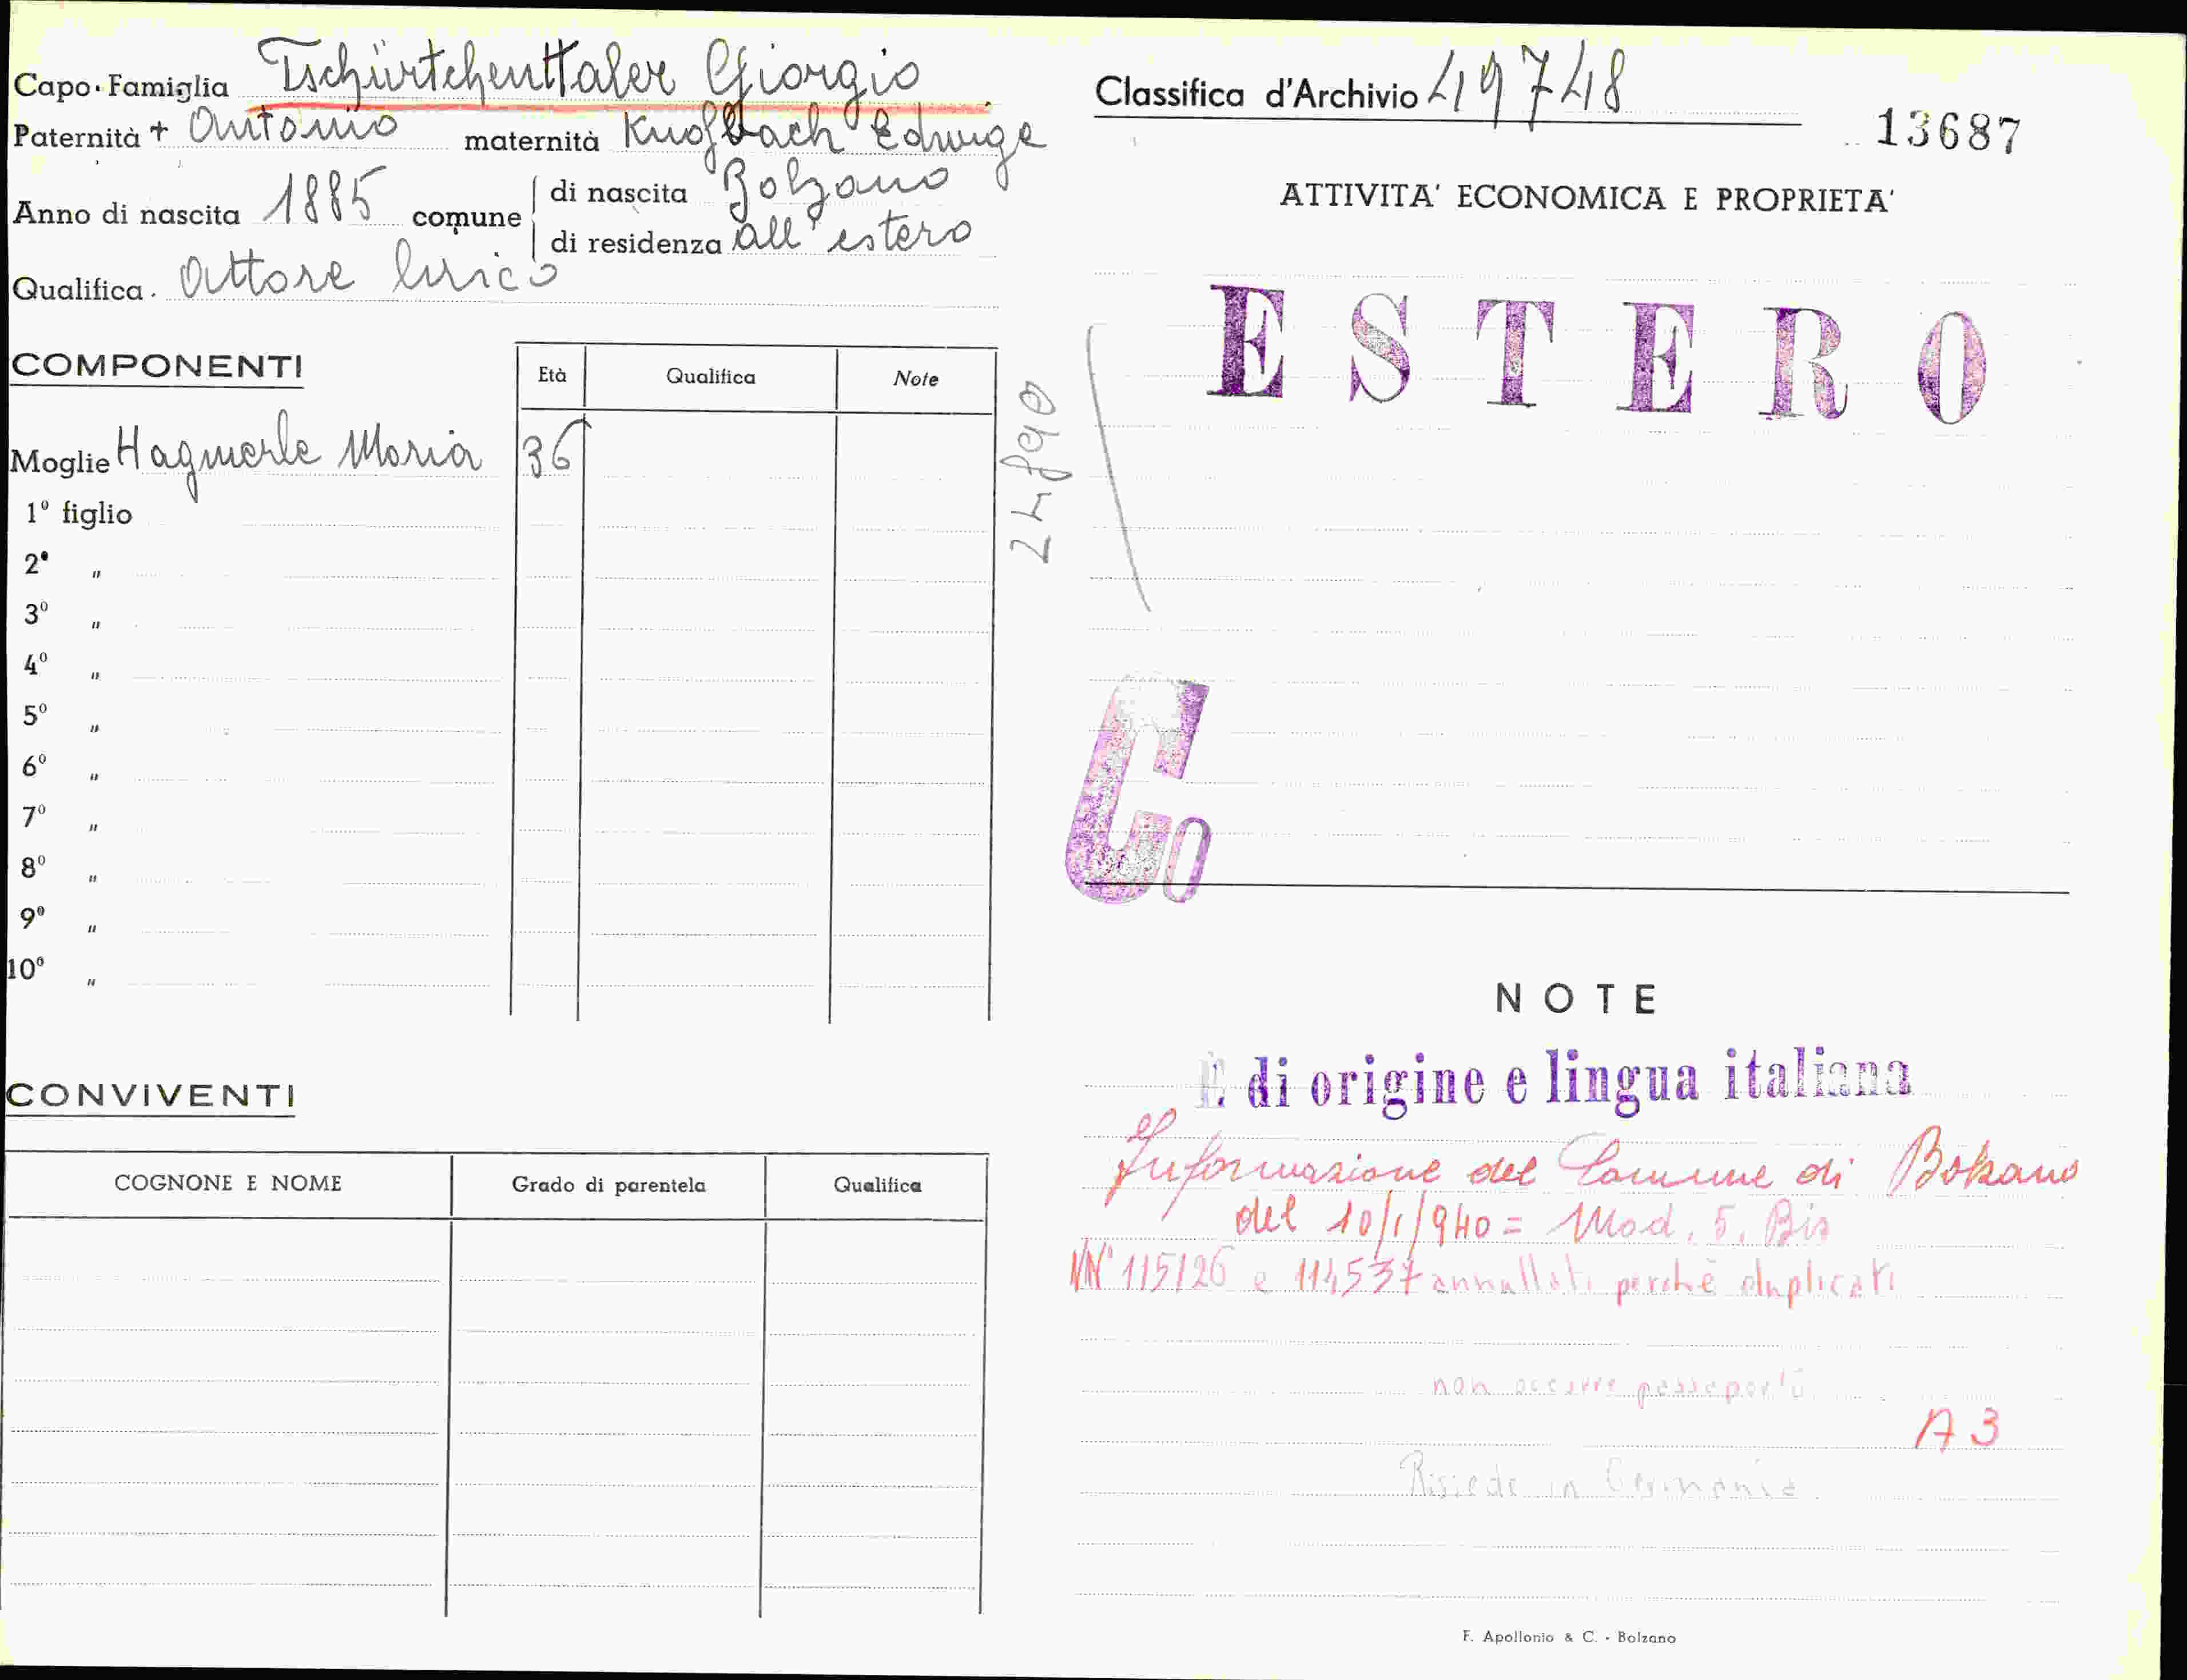 Capo-Famiglia Tschürtchenttaler Giorgio
Paternità + Antonio maternità Knoflbach Edwige
Anno di nascita 1885 comune di nascita Bolzano
di residenza all'estero
Qualifica. Attore lirico
COMPONENTI
Età Qualifica Note
Moglie Hagmerle Maria 36
1º figlio
2º "
3º "
4º "
5º "
6º "
7º "
8º "
9º "
10º "
CONVIVENTI
COGNONE E NOME Grado di parentela Qualifica
24890
Classifica d'Archivio 49748
13687
ATTIVITA' ECONOMICA E PROPRIETA'
ESTERO
Co
NOTE
È di origine e lingua italiana
Informazione del Comune di Bolzano
del 10/1/940 = Mod. 5. Bis
NN° 115126 e 114537 annullati perchè duplicati
non occorre passaporto
A 3
Risiede in Germania
F. Apollonio & C. - Bolzano